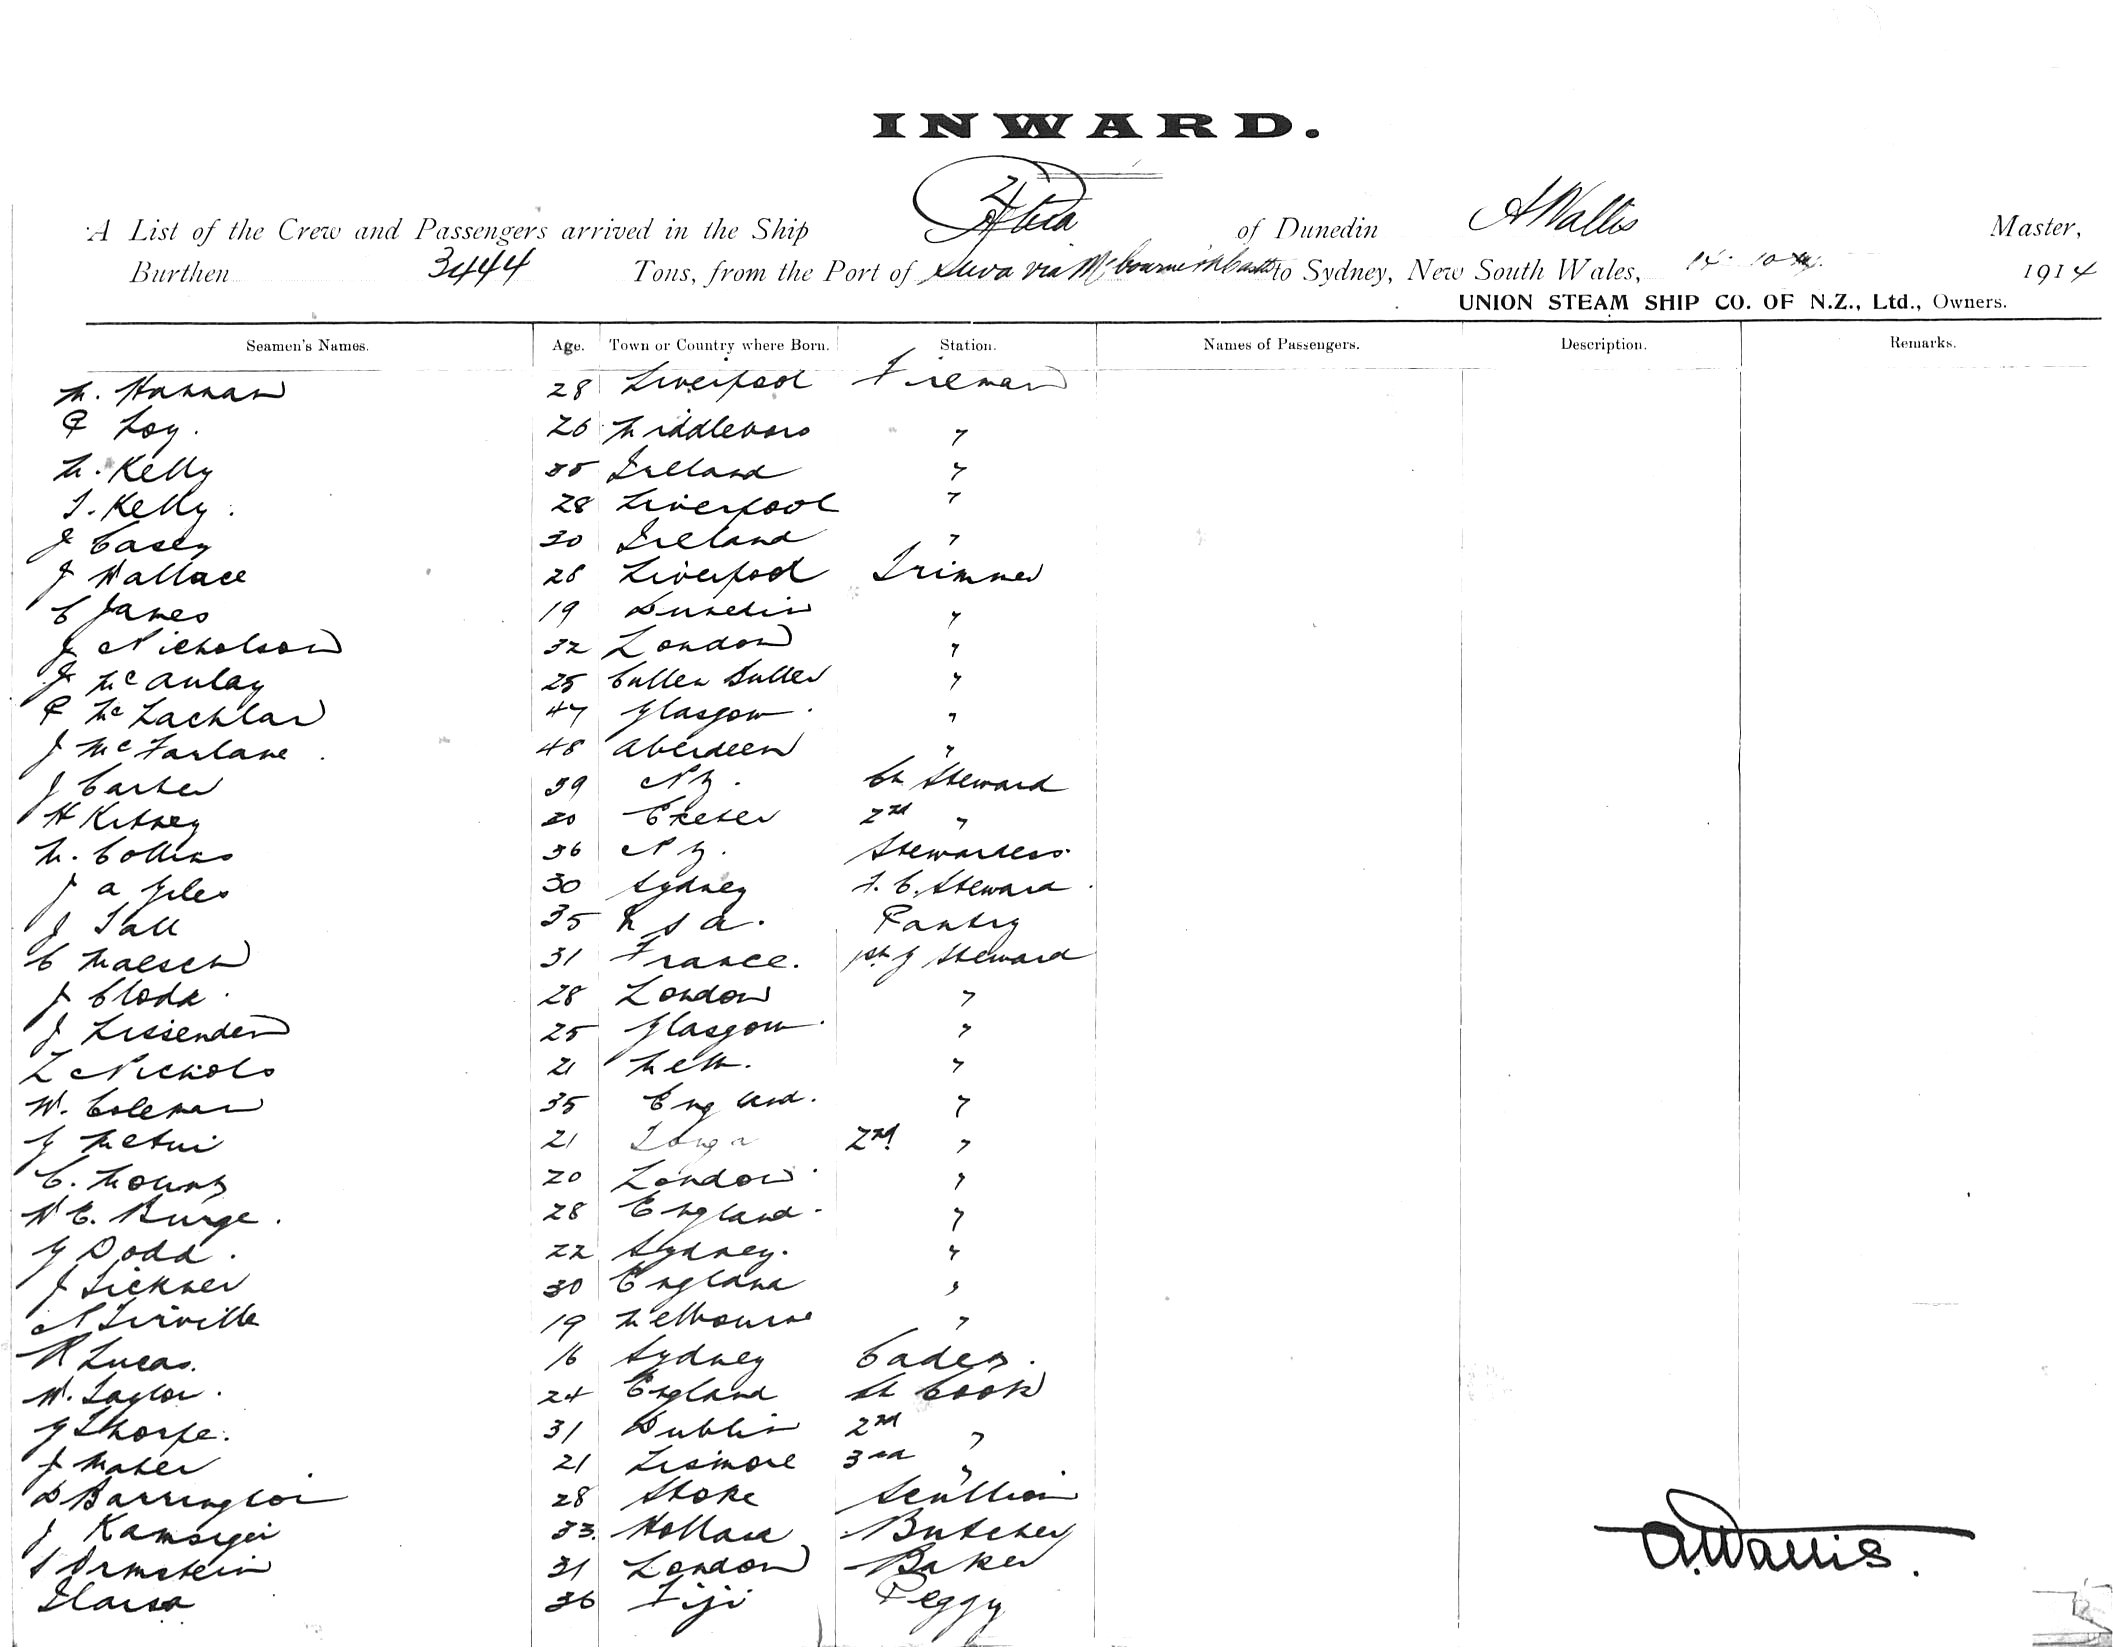 INWARD.
A List of the Crew and Passengers arrived in the Ship Atua of Dunedin A Wallis Master,
Burthen 3444 Tons, from the Port of Suva via to Sydney, New South Wales, 14 10 1914
UNION STEAM SHIP CO. OF N.Z., Ltd., Owners.
Seamen's Names. Age. Town or Country where Born. Station. Names of Passengers. Description. Remarks.
M. Hannan 28 Liverpool Fireman
P Loy. 26 Middleboro "
M. Kelly 35 Ireland "
T. Kelly. 28 Liverpool "
J Casey 30 Ireland "
J Wallace 28 Liverpool Trimmer
C James 19 Dunedin "
J Nicholson 32 London "
J McAulay 25 Cullen Bullen "
P McLachlan 47 Glasgow "
J McFarlane. 48 Aberdeen "
J Carter 39 N Z. Ch Steward
H Kitney 30 Exeter 2nd "
M. Collins 36 N Z. Stewardess
J A Giles 30 Sydney F. C. Steward
J Tall 35 U S A. Pantry
C 31 France. Steward
J 28 London "
J Lissenden 25 Glasgow "
L Nichols 21 Melb. "
W. Coleman 35 England. "
G 21 Tonga 2nd "
C. Mount 20 London "
W E. Burge. 28 England. "
G Dodd. 22 Sydney. "
J Tickner 30 England "
N Turville 19 Melbourne "
R Lucas. 16 Sydney Cadet.
W. Taylor. 24 England Ch Cook
G Thorpe. 31 Dublin 2nd "
J Maher 21 Lismore 3rd "
D Barrington 28 Stoke Scullion
J 33. Holland Butcher
S Ormstein 31 London Baker
36 Fiji Peggy
A. Wallis.